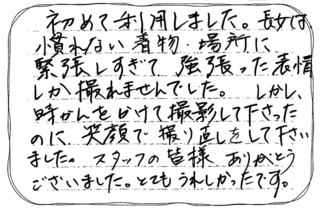 初めて利用しました。長女は
慣れない着物・場所に
緊張しすぎて強張った表情
しか撮れませんでした。しかし、
時かんをかけて撮影して下さった
のに、笑顔で撮り直しをして下さい
ました。スタッフの皆様ありがとう
ございました。とてもうれしかったです。